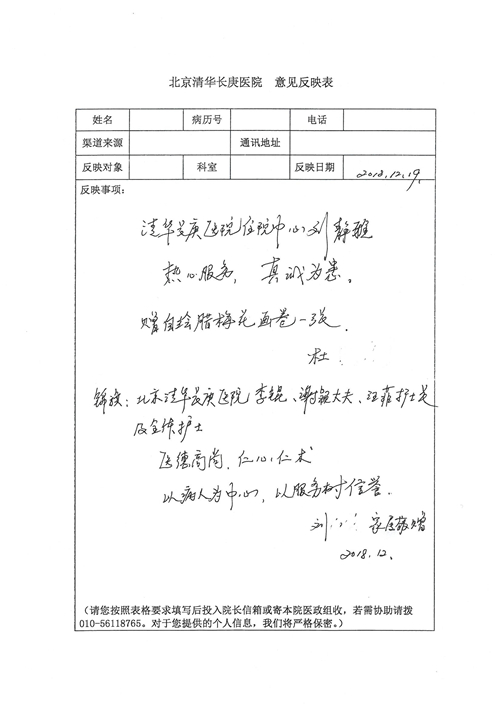 北京清华长庚医院 意见反映表
姓名 病历号 电话
渠道来源 通讯地址
反映对象 科室 反映日期 2018.12.19.
反映事项:
清华长庚医院住院中心刘静雅
热心服务, 真诚为患。
赠自绘腊梅花画卷一张.
杜
锦旗: 北京清华长庚医院李锟、谢 大夫、汪菲护士长
及全体护士
医德高尚. 仁心仁术
以病人为中心, 以服务树信誉.
刘 家属敬赠
2018.12.
(请您按照表格要求填写后投入院长信箱或寄本院医政组收,若需协助请拨
010-56118765。对于您提供的个人信息,我们将严格保密。)